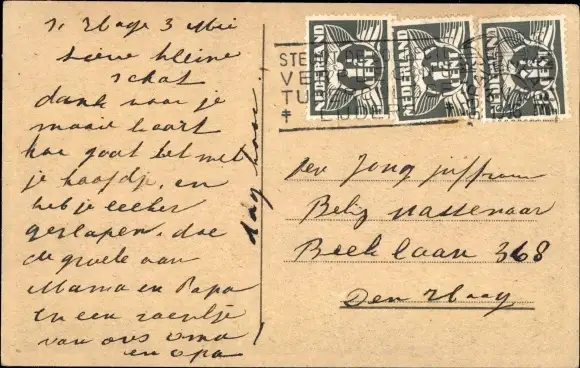 Hage 3 Mei
Lieve kleine
schat
dank voor je
mooie kaart
hoe gaat het met
je hoofdje, en
heb je lekker
geslapen, doe
de groete aan
Mama en Papa
en een zoentje
van ons oma
en opa
dag hoor
NEDERLAND
1½ CENT
NEDERLAND
1½ CENT
NEDERLAND
CENT
STE
VE
TU
den Jong juffrouw
Betsy Wassenaar
Beeklaan 368
Den Haag